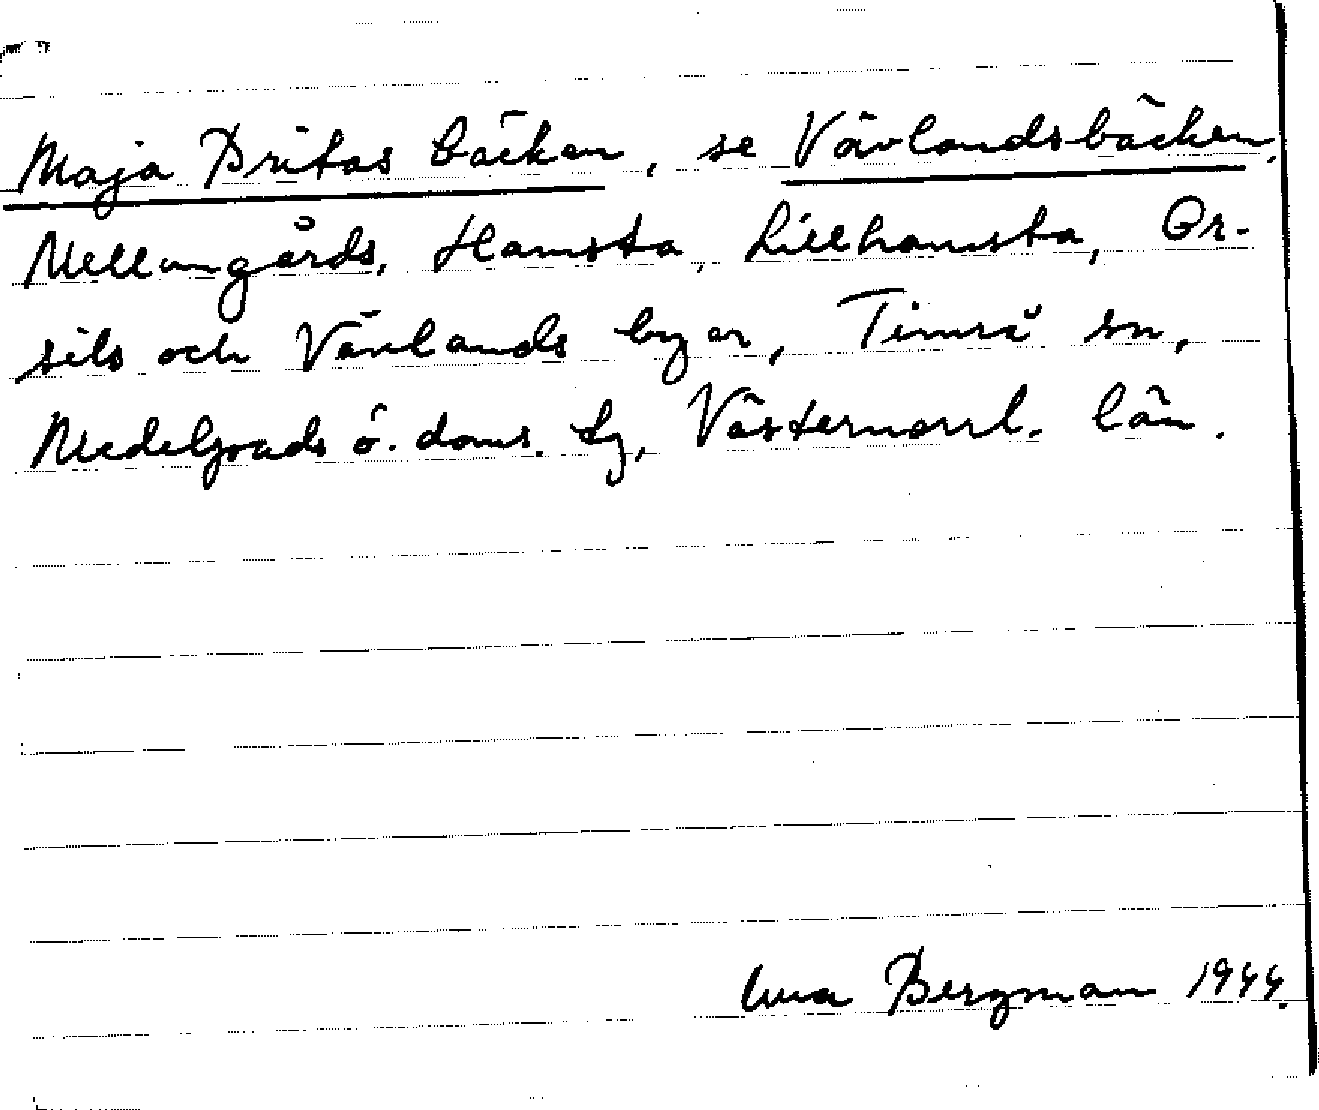 Maja Britas bäcken, se Vävlandsbäcken.
Mellangårds, Hamsta, Lillhamsta, Or-
sils och Vävlands byar, Timrå sn,
Medelpads ö. doms. tg, Västernorrl. län.
Bergman 1944.